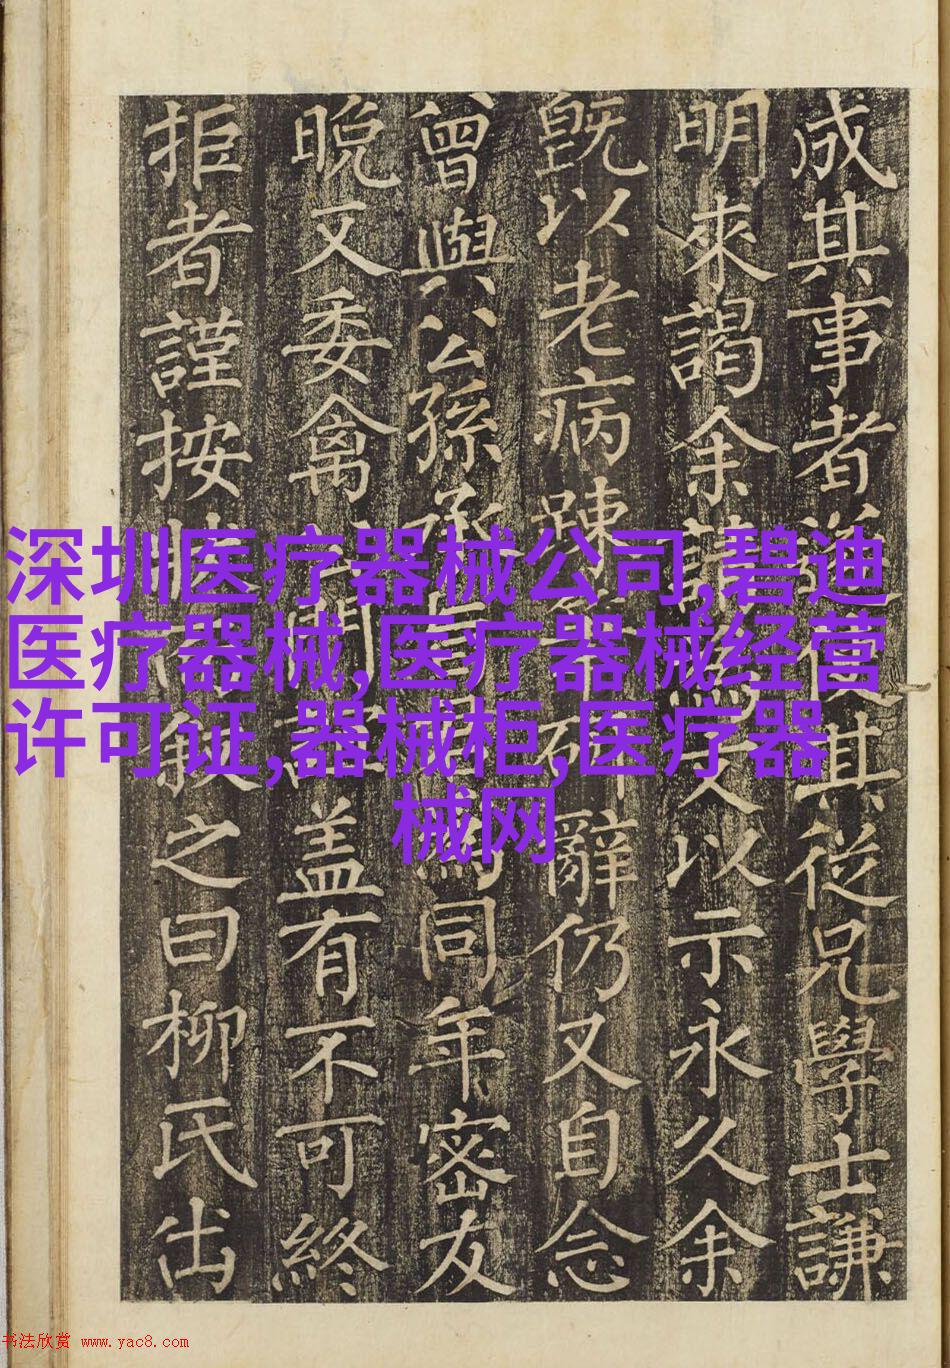 成其事者使其從兄學士謙
明來謁余請文以示永久余
旣以老病踈辭仍又自念
曾與公孫同年密友
晩又委禽盖有不可終
拒者謹按敘之曰柳氏出
深圳医疗器械公司,碧迪
医疗器械,医疗器械经营
许可证,器械柜,医疗器
械网
书法欣赏 www.yac8.com